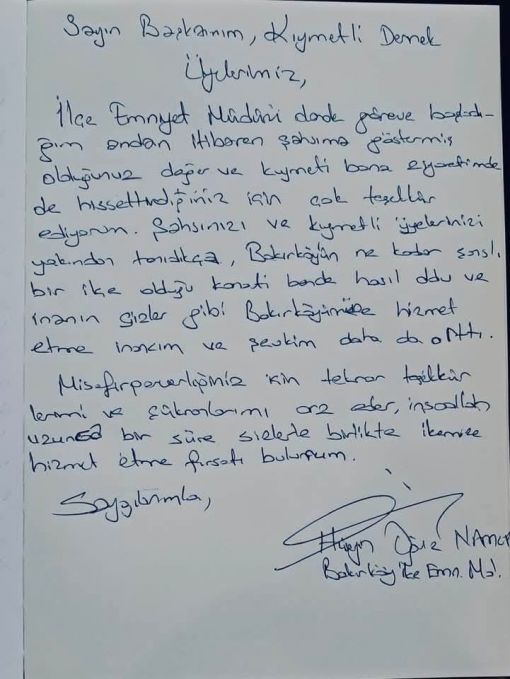 Sayın Başkanım, Kıymetli Dernek
Üyelerimiz,
İlçe Emniyet Müdürü olarak göreve başladı-
ğım andan itibaren şahıma göstermiş
olduğunuz değer ve kıymeti bana ziyaretimde
de hissettirdiğiniz için çok teşekkür
ediyorum. Şahsınızı ve kıymetli üyelerinizi
yakından tanıdıkça, Bakırköyün ne kadar şanslı
bir ilçe olduğu kanati bende hasıl oldu ve
inanın sizler gibi Bakırköyümüze hizmet
etme inancım ve şevkim daha da arttı.
Misafirperverliğiniz için tekrar teşekkür
lerimi ve şükranlarımı arz eder, inşaallah
uzunca bir süre sizlerle birlikte ilcemize
hizmet etme fırsatı bulurum.
Saygılarımla,
Oğuz NAMLI
Bakırköy İlçe Emn. Md.